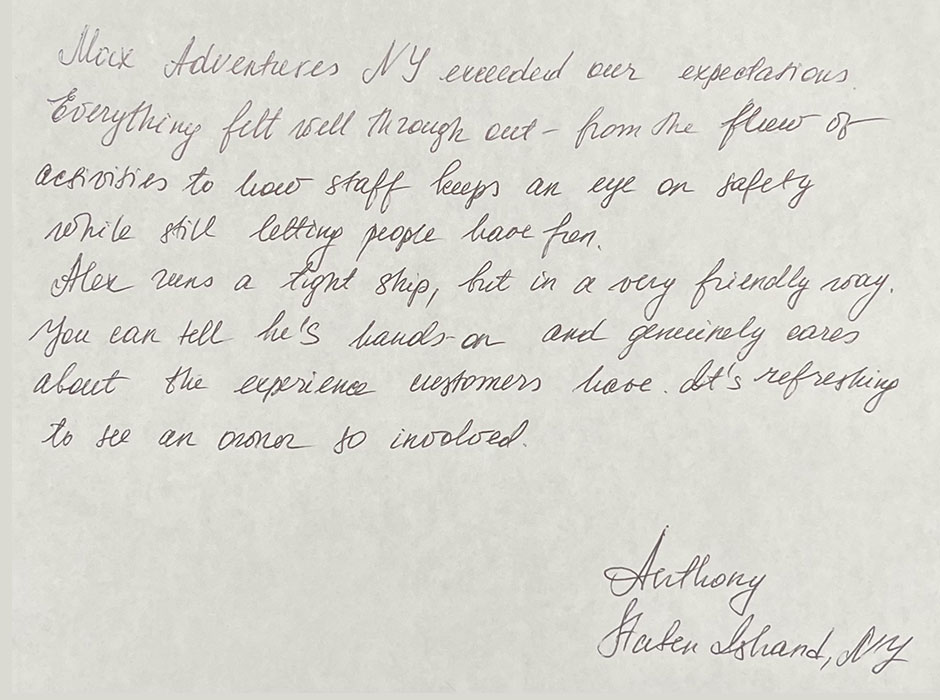 Max Adventures NY exceeded our expectations.
Everything felt well through out – from the flow of
activities to how staff keeps an eye on safety
while still letting people have fun.
Alex runs a tight ship, but in a very friendly way.
You can tell he's hands-on and genuinely cares
about the experience customers have. It's refreshing
to see an owner so involved.
Anthony
Staten Island, NY